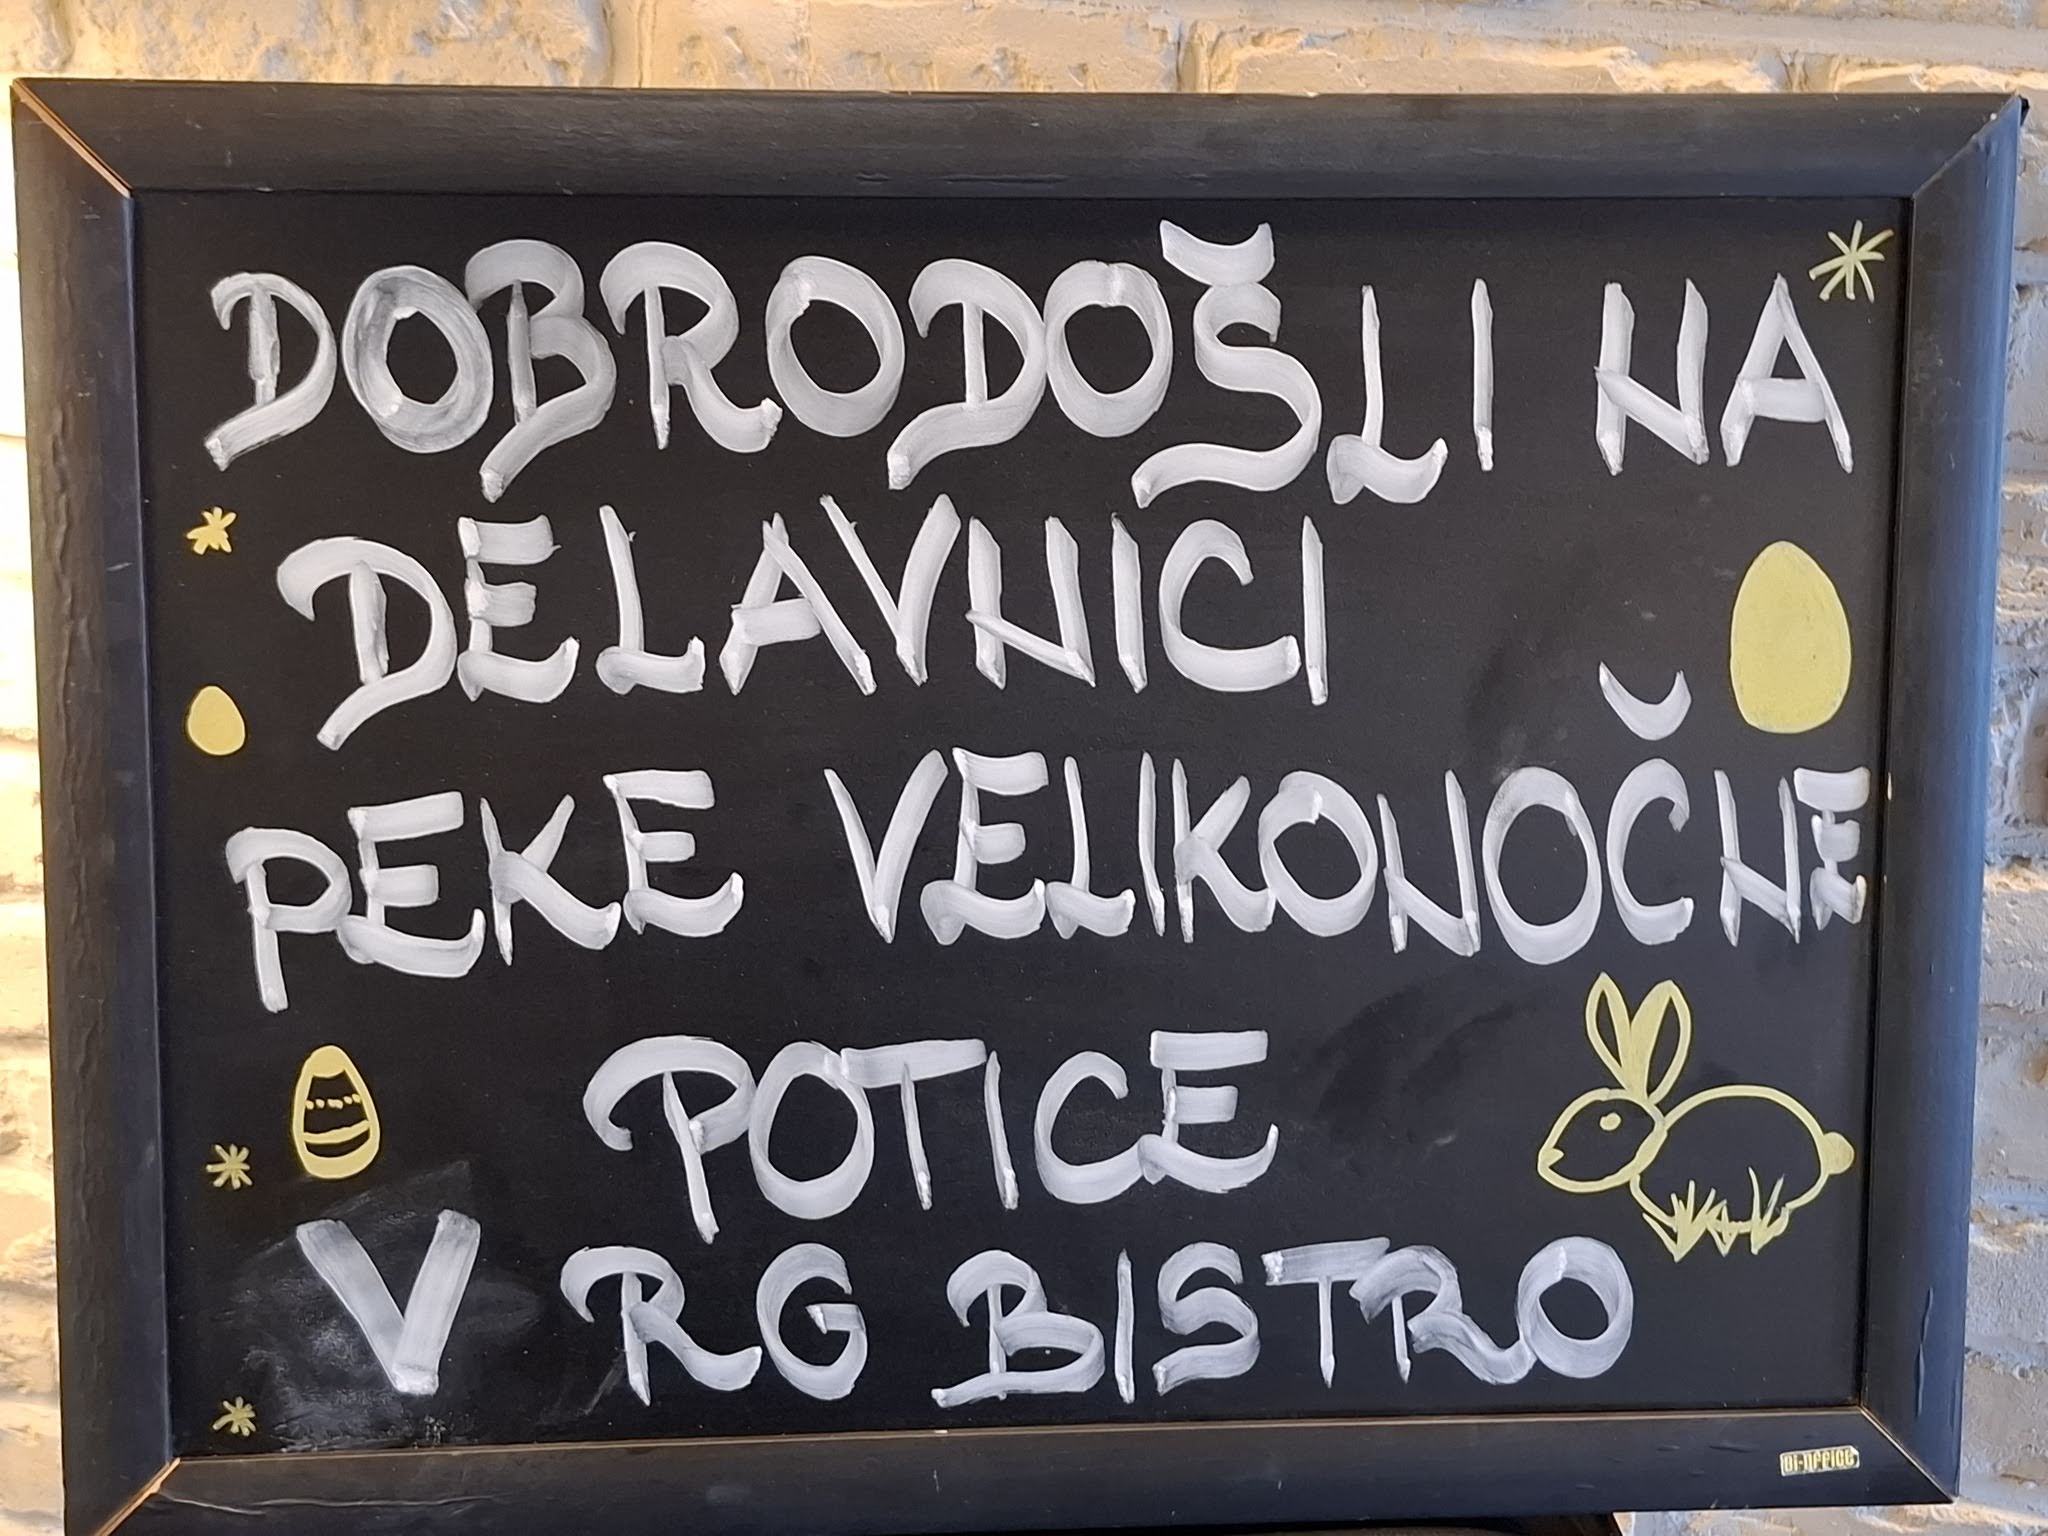 DOBRODOŠLI NA
DELAVNICI
PEKE VELIKONOČNE
POTICE
V RG BISTRO
BI-OFFICE